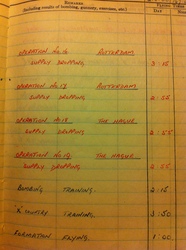 REMARKS
(Including results of bombing, gunnery, exercises, etc.)
OPERATION No. 16 ROTTERDAM.
SUPPLY DROPPING 3.15
OPERATION No. 17 ROTTERDAM.
SUPPLY DROPPING 2:55
OPERATION No. 18 THE HAGUE.
SUPPLY DROPPING. 2.55
OPERATION No. 19. THE HAGUE.
SUPPLY DROPPING. 2:55
BOMBING TRAINING. 2:15
"X" COUNTRY TRAINING. 3:50
FORMATION FLYING. 1:00